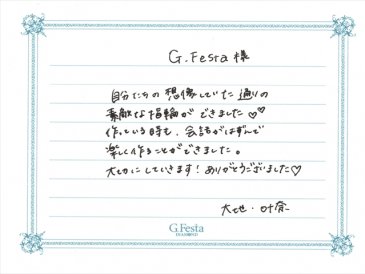 G.Festa 様
自分たちの想像していた通りの
素敵な指輪ができました♡♡
作っている時も、会話がはずんで
楽しく作ることができました。
大切にしていきます!ありがとうございました♡
大地・叶
G.Festa
DIAMOND